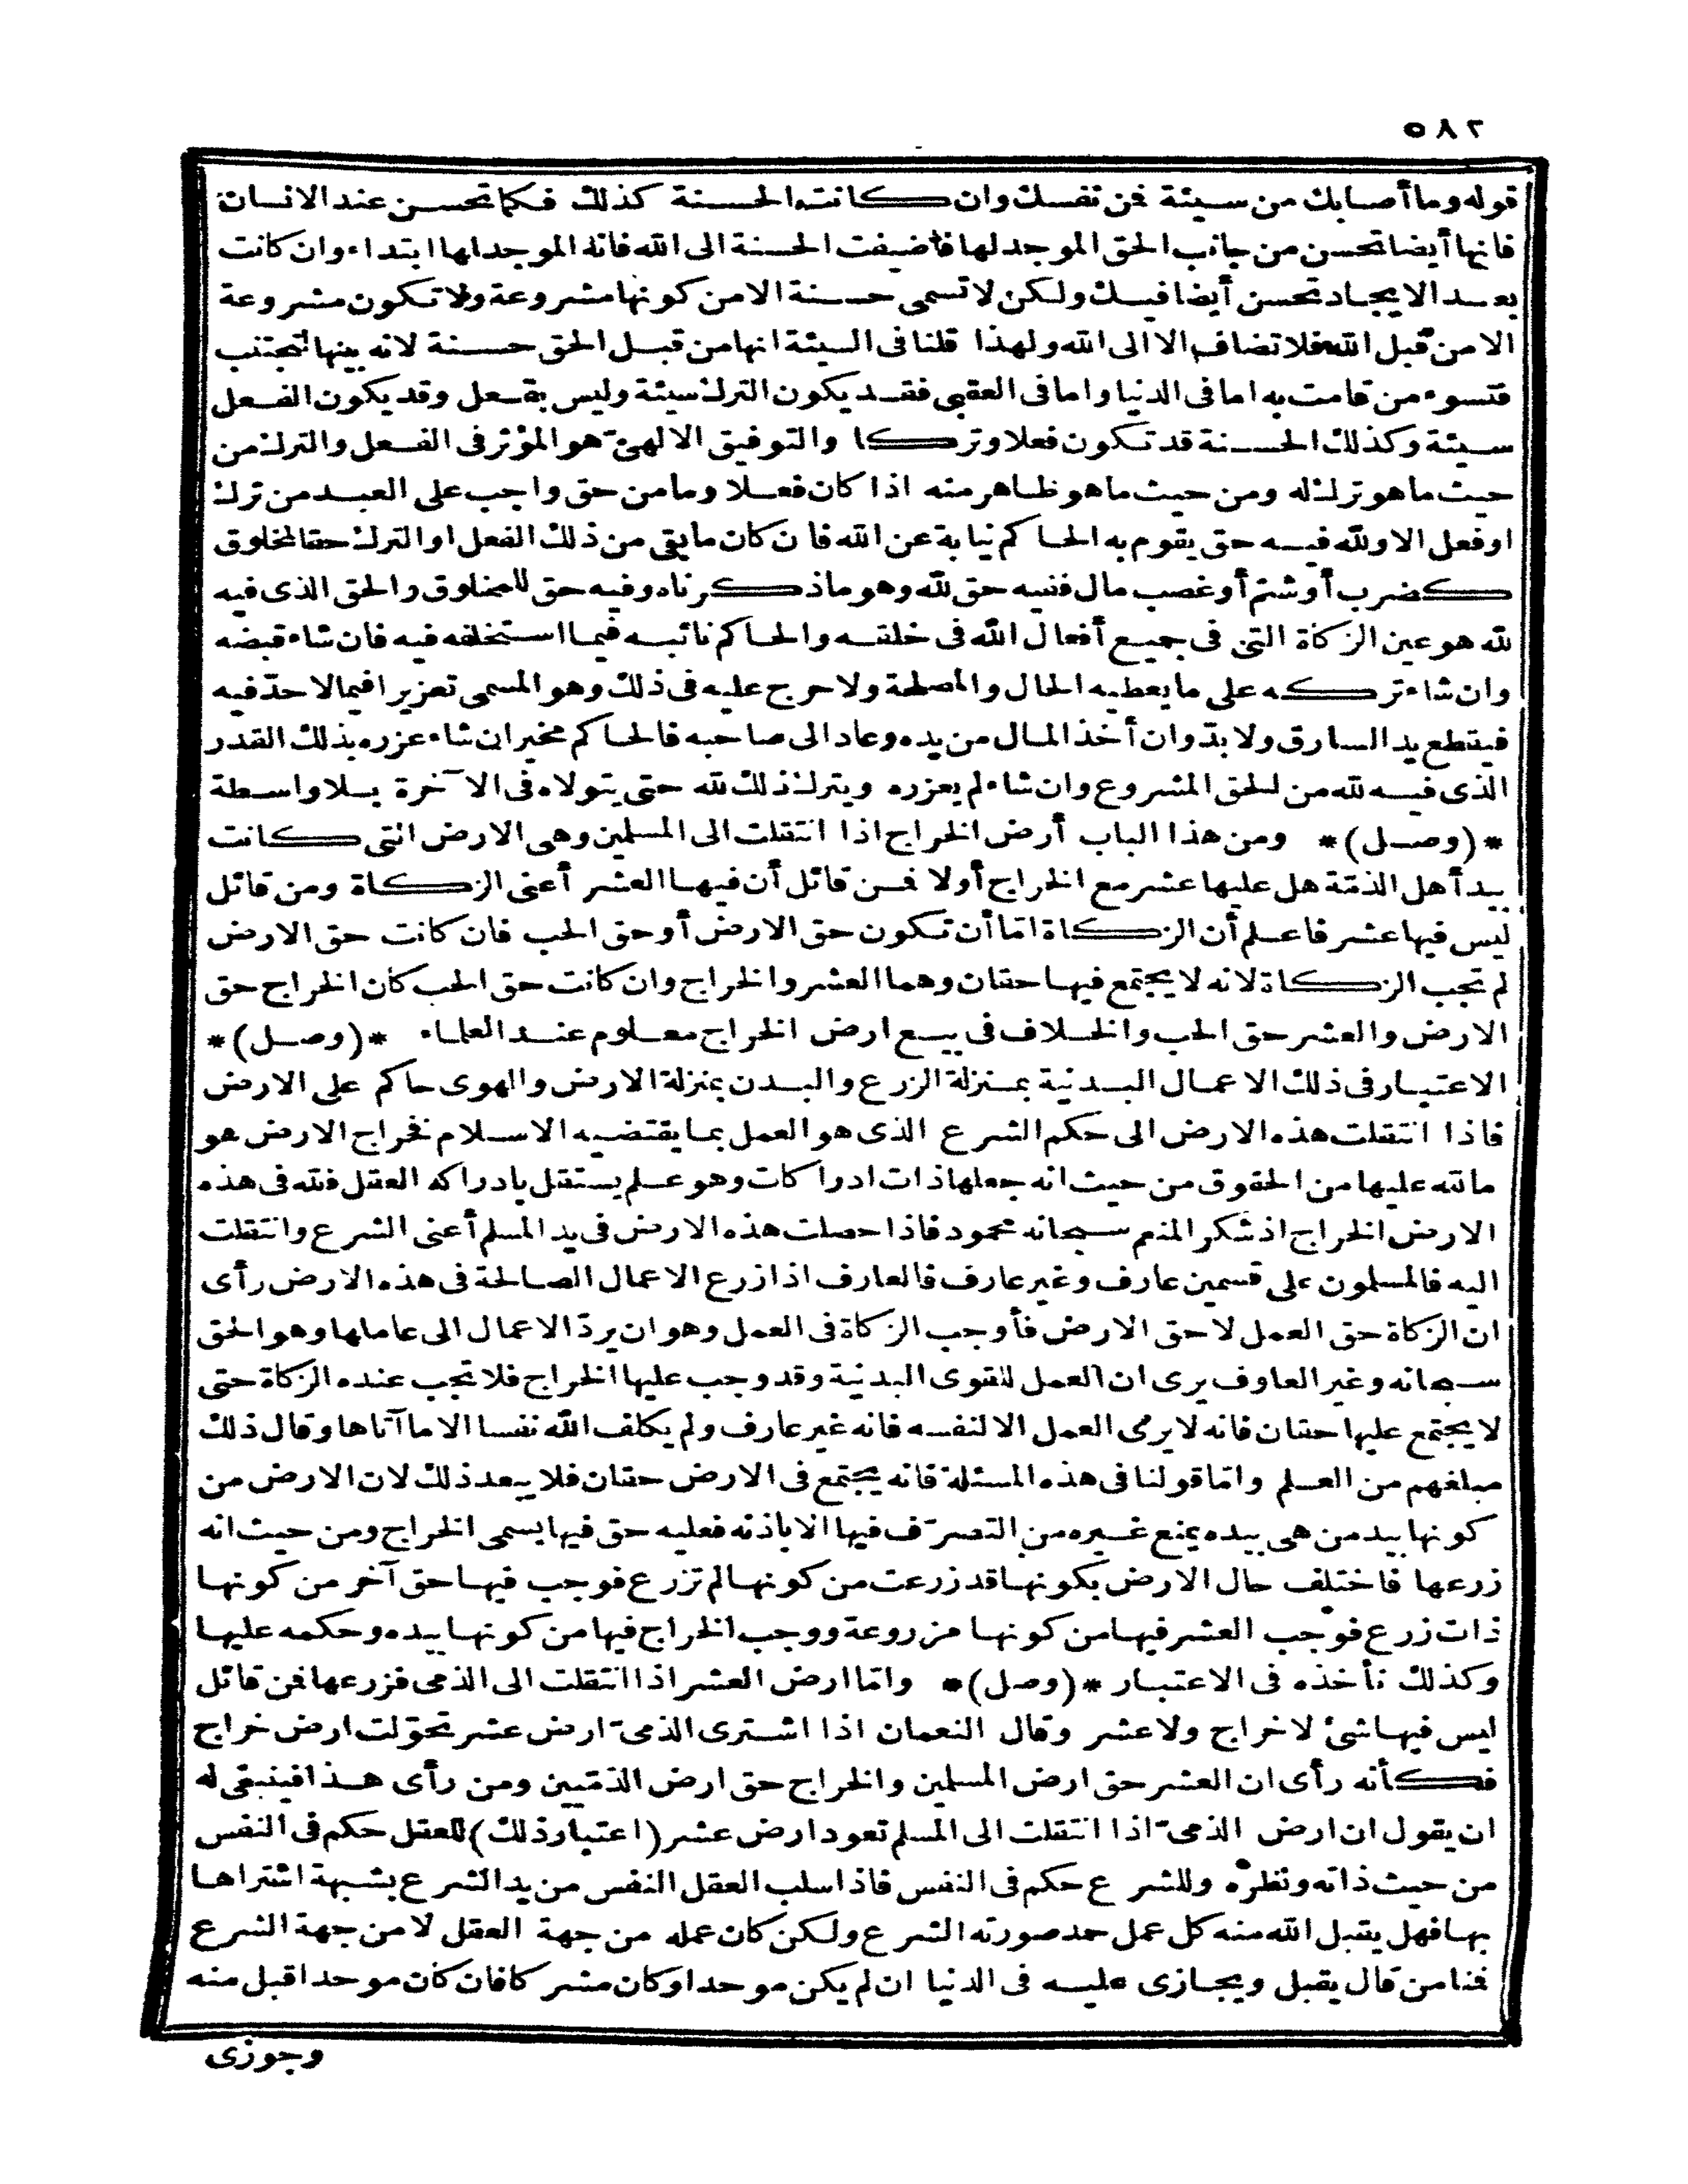 ٥٨٢
قوله وما أصابك من سيئة فمن نفسك وان كانت الحسنة كذلك فكما تحسن عند الانسان
فانها أيضا تحسن من جانب الحق الموجد لها فأضيفت الحسنة الى الله فانه الموجد لها ابتداء وان كانت
بعد الايجاد تحسن أيضا فيك ولكن لا تسمى حسنة الا من كونها مشروعة ولا تكون مشروعة
الا من قبل الله فلا تضاف الا الى الله ولهذا قلنا فى السيئة انها من قبل الحق حسنة لانه بينها لتجتنب
فتسوء من قامت به اما فى الدنيا واما فى العقبى فقد يكون الترك سيئة وليس بفعل وقد يكون الفعل
سيئة وكذلك الحسنة قد تكون فعلا وتركا والتوفيق الالهىّ هو المؤثر فى الفعل والترك من
حيث ما هو ترك له ومن حيث ما هو ظاهر منه اذا كان فعلا وما من حق واجب على العبد من ترك
او فعل الا ولله فيه حق يقوم به الحاكم نيابة عن الله فان كان ما بقى من ذلك الفعل او الترك حقا لمخلوق
كضرب أو شتم أو غصب مال ففيه حق لله وهو ما ذكرناه وفيه حق للمخلوق والحق الذى فيه
لله هو عين الزكاة التى فى جميع أفعال الله فى خلقه والحاكم نائبه فيما استخلفه فيه فان شاء قبضه
وان شاء تركه على ما يعطيه الحال والمصلحة ولا حرج عليه فى ذلك وهو المسمى تعزيرا فيما لا حدّ فيه
فيقطع يد السارق ولا بدّ وان أخذ المال من يده وعاد الى صاحبه فالحاكم مخير ان شاء عزره بذلك القدر
الذى فيه لله من الحق المشروع وان شاء لم يعزره ويترك ذلك لله حتى يتولاه فى الآخرة بلا واسطة
*(وصل)* ومن هذا الباب أرض الخراج اذا انتقلت الى المسلمين وهى الارض التى كانت
بيد أهل الذمّة هل عليها عشر مع الخراج أولا فمن قائل أن فيها العشر أعنى الزكاة ومن قائل
ليس فيها عشر فاعلم أن الزكاة امّا أن تكون حق الارض أو حق الحب فان كانت حق الارض
لم تجب الزكاة لانه لا يجتمع فيها حقان وهما العشر والخراج وان كانت حق الحب كان الخراج حق
الارض والعشر حق الحب والخلاف فى بيع ارض الخراج معلوم عند العلماء *(وصل)*
الاعتبار فى ذلك الاعمال البدنية بمنزلة الزرع والبدن بمنزلة الارض والهوى حاكم على الارض
فاذا انتقلت هذه الارض الى حكم الشرع الذى هو العمل بما يقتضيه الاسلام فخراج الارض هو
ما لله عليها من الحقوق من حيث انه جعلها ذات ادراكات وهو علم يستقل بادراكه العقل فلله فى هذه
الارض الخراج اذ شكر المنعم سبحانه محمود فاذا حصلت هذه الارض فى يد المسلم أعنى الشرع وانتقلت
اليه فالمسلمون على قسمين عارف وغير عارف فالعارف اذا زرع الاعمال الصالحة فى هذه الارض رأى
ان الزكاة حق العمل لا حق الارض فأوجب الزكاة فى العمل وهو ان يردّ الاعمال الى عاملها وهو الحق
سبحانه وغير العاوف يرى ان العمل للقوى البدنية وقد وجب عليها الخراج فلا تجب عنده الزكاة حتى
لا يجتمع عليها حقان فانه لا يرى العمل الا لنفسه فانه غير عارف ولم يكلف الله نفسا الا ما آتاها وقال ذلك
مبلغهم من العلم وامّا قولنا فى هذه المسئلة فانه يجتمع فى الارض حقان فلا يبعد ذلك لان الارض من
كونها بيد من هى بيده يمنع غيره من التصرّف فيها الا باذنه فعليه حق فيها يسمى الخراج ومن حيث انه
زرعها فاختلف حال الارض بكونها قد زرعت من كونها لم تزرع فوجب فيها حق آخر من كونها
ذات زرع فوجب العشر فيها من كونها مزروعة ووجب الخراج فيها من كونها بيده وحكمه عليها
وكذلك نأخذه فى الاعتبار *(وصل)* وامّا ارض العشر اذا انتقلت الى الذمى فزرعها فمن قائل
ليس فيها شئ لا خراج ولا عشر وقال النعمان اذا اشترى الذمىّ ارض عشر تحوّلت ارض خراج
فكأنه رأى ان العشر حق ارض المسلمين والخراج حق ارض الذمّيين ومن رأى هذا فينبغى له
ان يقول ان ارض الذمىّ اذا انتقلت الى المسلم تعود ارض عشر (اعتبار ذلك) للعقل حكم فى النفس
من حيث ذاته ونظره وللشرع حكم فى النفس فاذا سلب العقل النفس من يد الشرع بشبهة اشتراها
بها فهل يقبل الله منه كل عمل حمد صورته الشرع ولكن كان عمله من جهة العقل لا من جهة الشرع
فمنا من قال يقبل ويجازى عليه فى الدنيا ان لم يكن موحدا وكان مشركا فان كان موحدا قبل منه
وجوزى